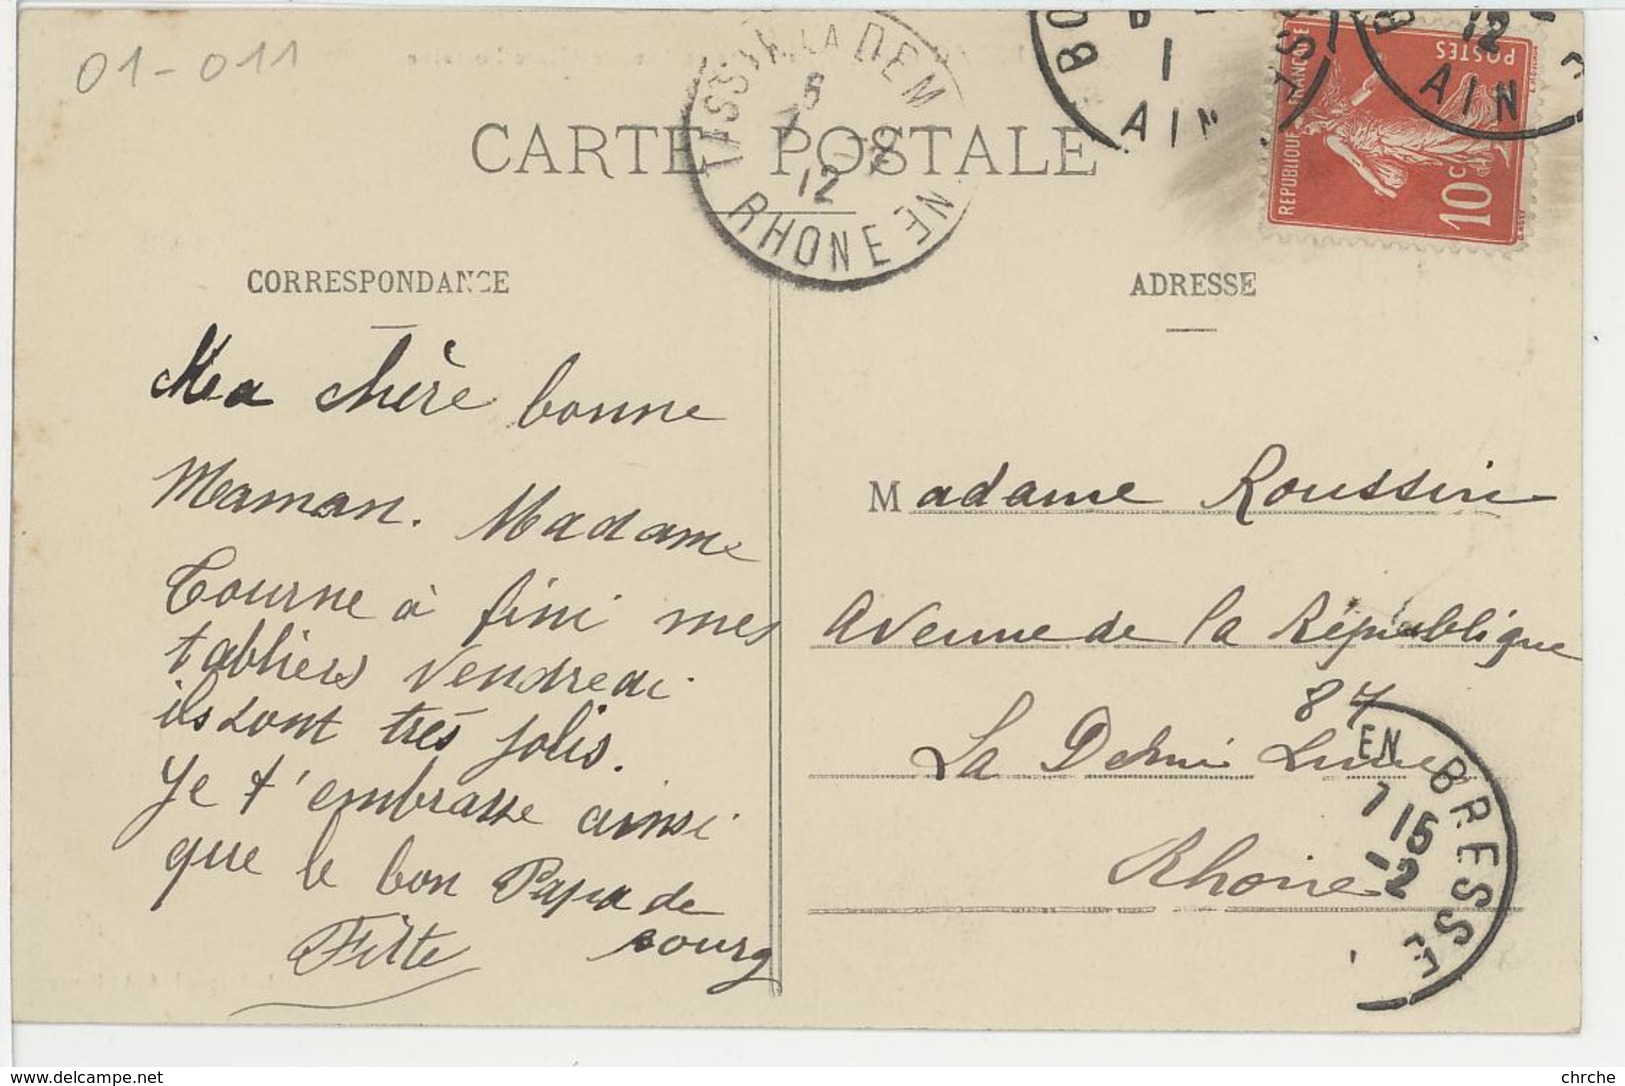 01-011
CARTE POSTALE
TASSIN-LA-DEM
7
12
RHONE
BO
1
AIN
12
AIN
REPUBLIQUE FRANÇAISE
POSTES
10c
CORRESPONDANCE
ADRESSE
Ma chère bonne
Maman. Madame
Tourne à fini mes
tabliers Vendredi
ils sont très jolis.
Je t'embrasse ainsi
que le bon Papa de
bourg
Fifte
Madame Roussin
Avenue de la République
87
La Demi Lune
Rhone
EN BRESSE
7 15
-2
www.delcampe.net
chrche